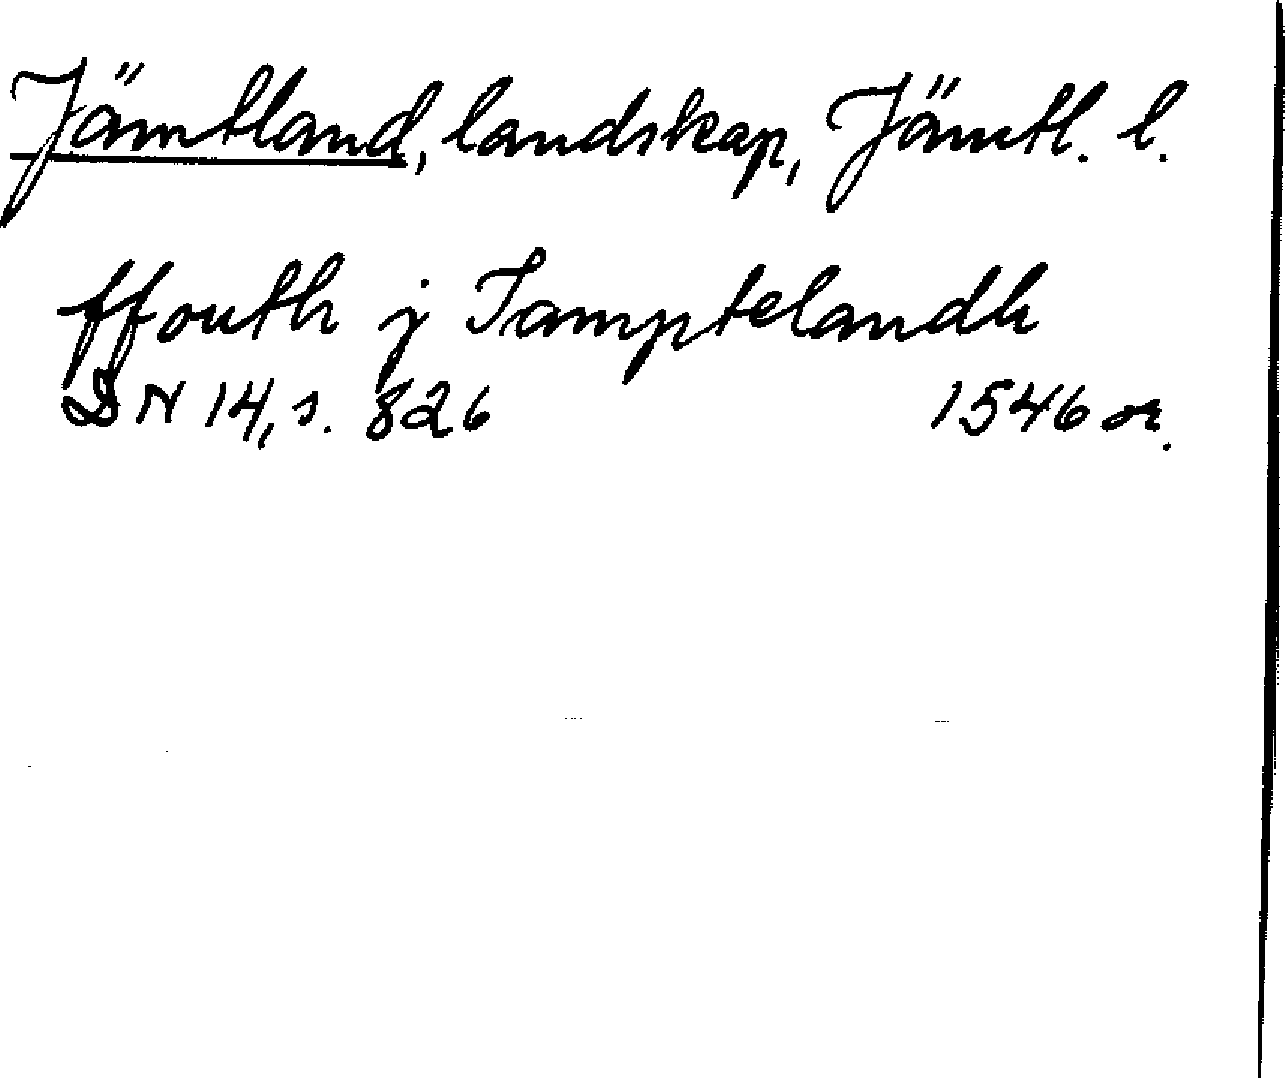 Jämtland, landskap, Jämtl. l.
ffouth j Iamptelandh
DN 14, s. 826 1546 or.